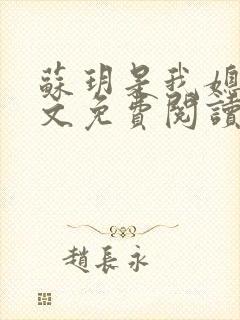 蘇玥是我媽
文免費閱讀
趙長永